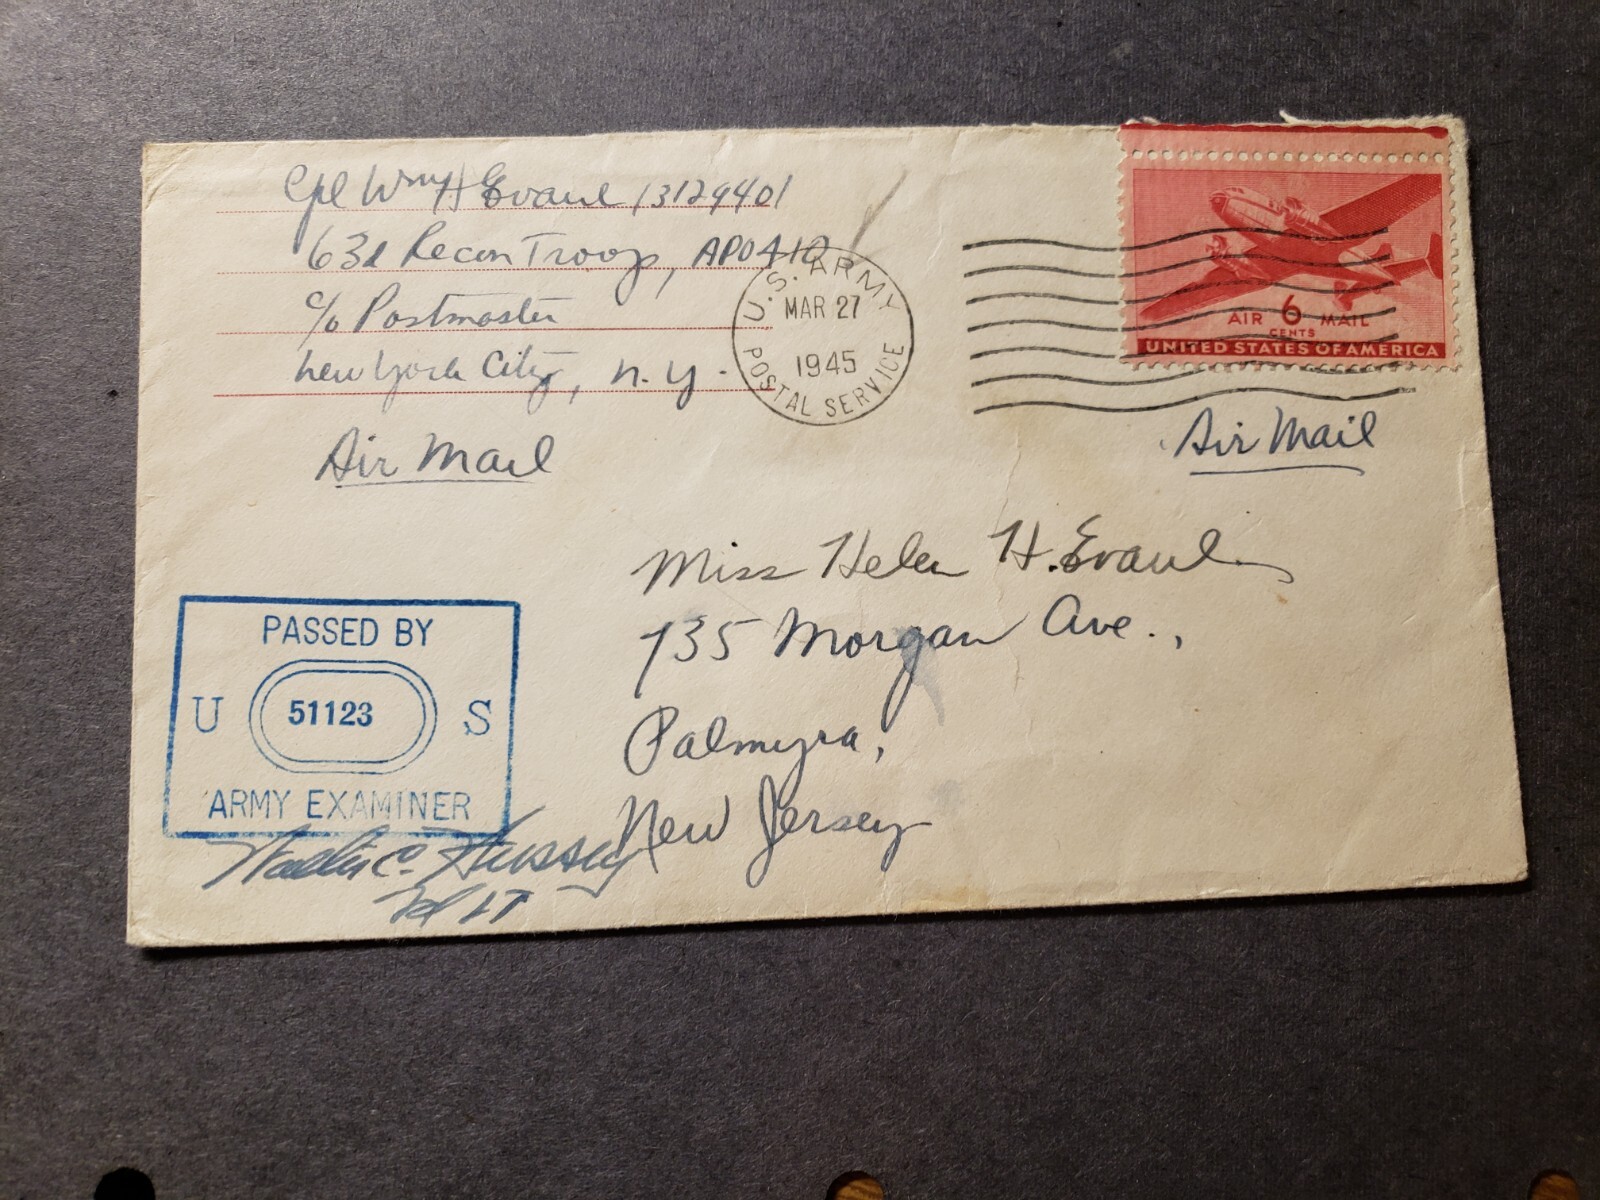 Cpl Wm H Evaul 13129401
63d Recon Troop, APO 410
c/o Postmaster
New York City, N.Y.
Air Mail
U.S. ARMY
MAR 27
1945
POSTAL SERVICE
AIR 6 MAIL
CENTS
UNITED STATES OF AMERICA
Air Mail
Miss Helen H. Evaul
735 Morgan Ave.,
Palmyra,
New Jersey
PASSED BY
U 51123 S
ARMY EXAMINER
C. Hussey
2d LT